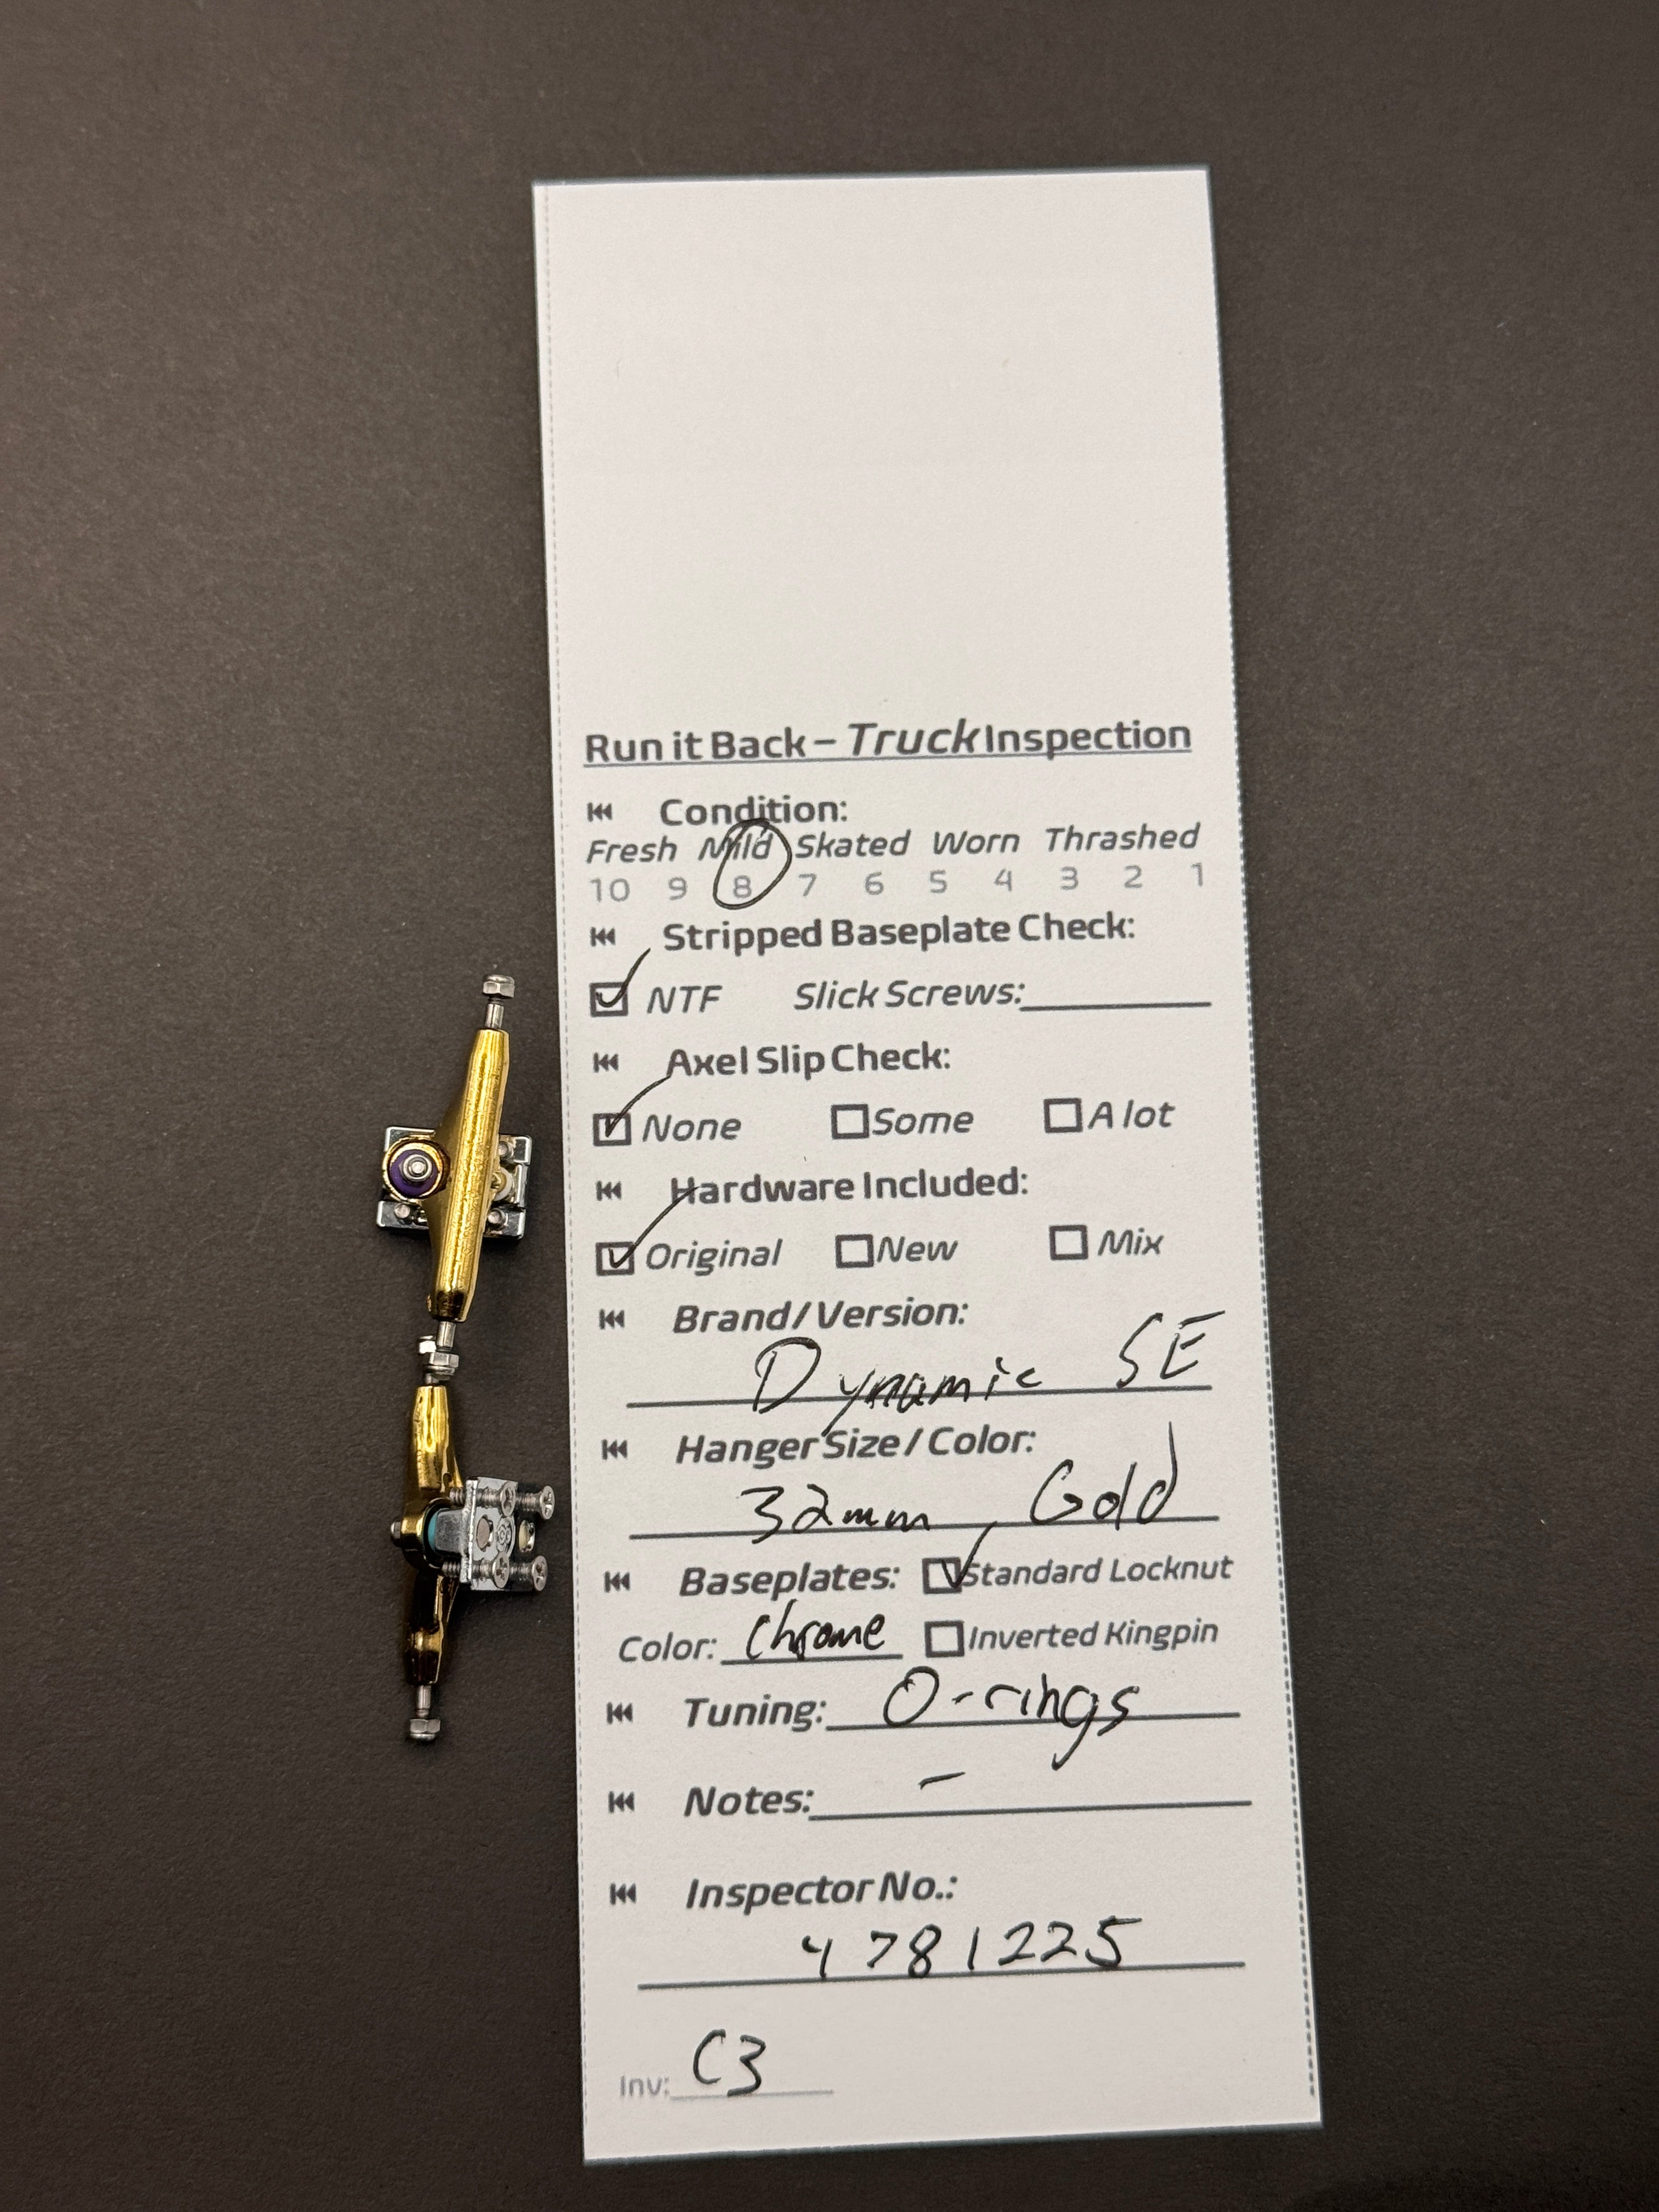 Run it Back – Truck Inspection
Condition:
Fresh Mild Skated Worn Thrashed
10 9 8 7 6 5 4 3 2 1
Stripped Baseplate Check:
NTF Slick Screws:
Axel Slip Check:
None Some A lot
Hardware Included:
Original New Mix
Brand/Version:
Dynamic SE
Hanger Size/Color:
32mm, Gold
Baseplates: Standard Locknut
Color: Chrome Inverted Kingpin
Tuning: O-rings
Notes: –
Inspector No.:
4781225
Inv: C3